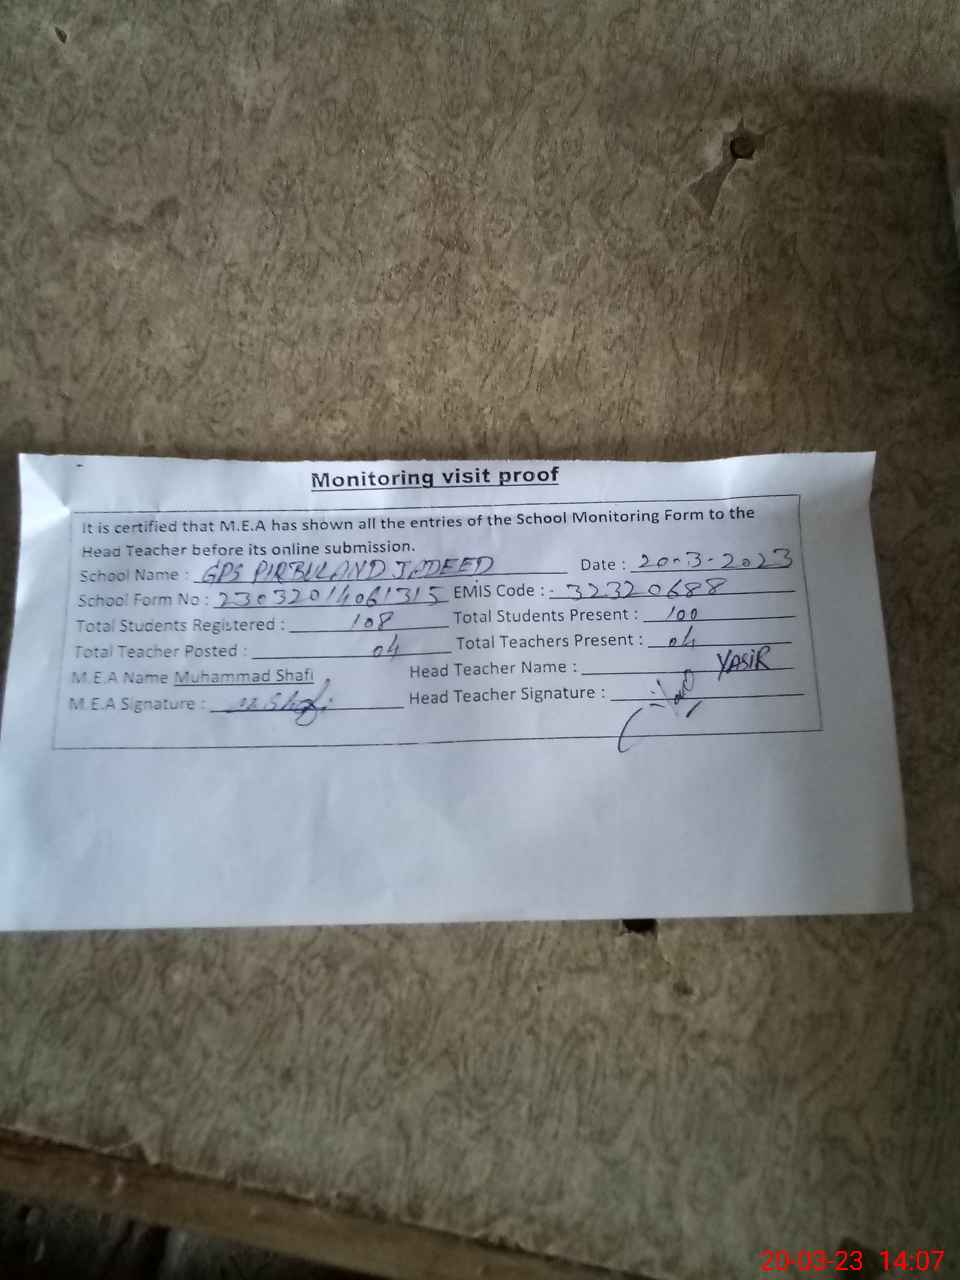 Monitoring visit proof
It is certified that M.E.A has shown all the entries of the School Monitoring Form to the
Head Teacher before its online submission.
School Name : GPS PIRBULAND JADEED Date : 20-3-2023
School Form No : 23032014061315 EMIS Code : - 32320688
Total Students Registered : 108 Total Students Present : 100
Total Teacher Posted : 04 Total Teachers Present : 04
M.E.A Name Muhammad Shafi Head Teacher Name : YASIR
M.E.A Signature : M.Shafi Head Teacher Signature :
20-03-23 14:07